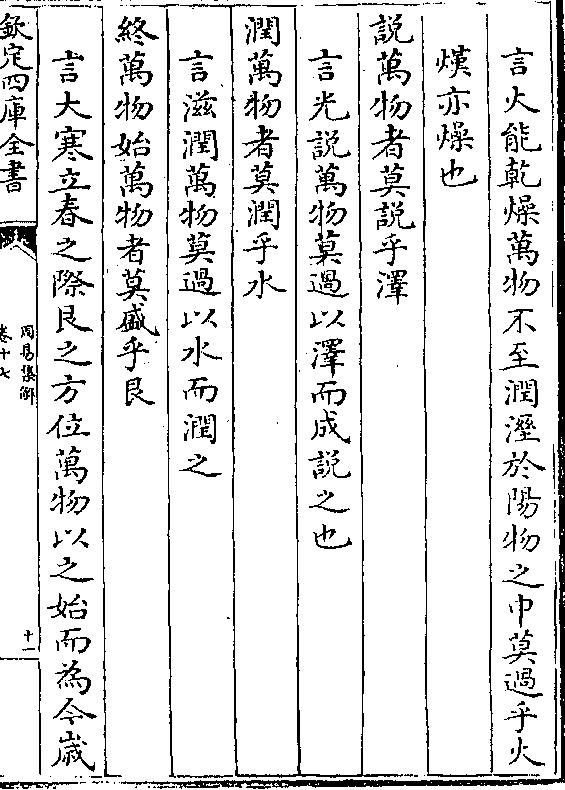 言火能乾燥萬物不至潤溼於陽物之中莫過乎火
熯亦燥也
說萬物者莫說乎澤
言光說萬物莫過以澤而成說之也
潤萬物者莫潤乎水
言滋潤萬物莫過以水而潤之
終萬物始萬物者莫盛乎艮
言大寒立春之際艮之方位萬物以之始而為今歲
欽定四庫全書
周易集解
卷十七
十一